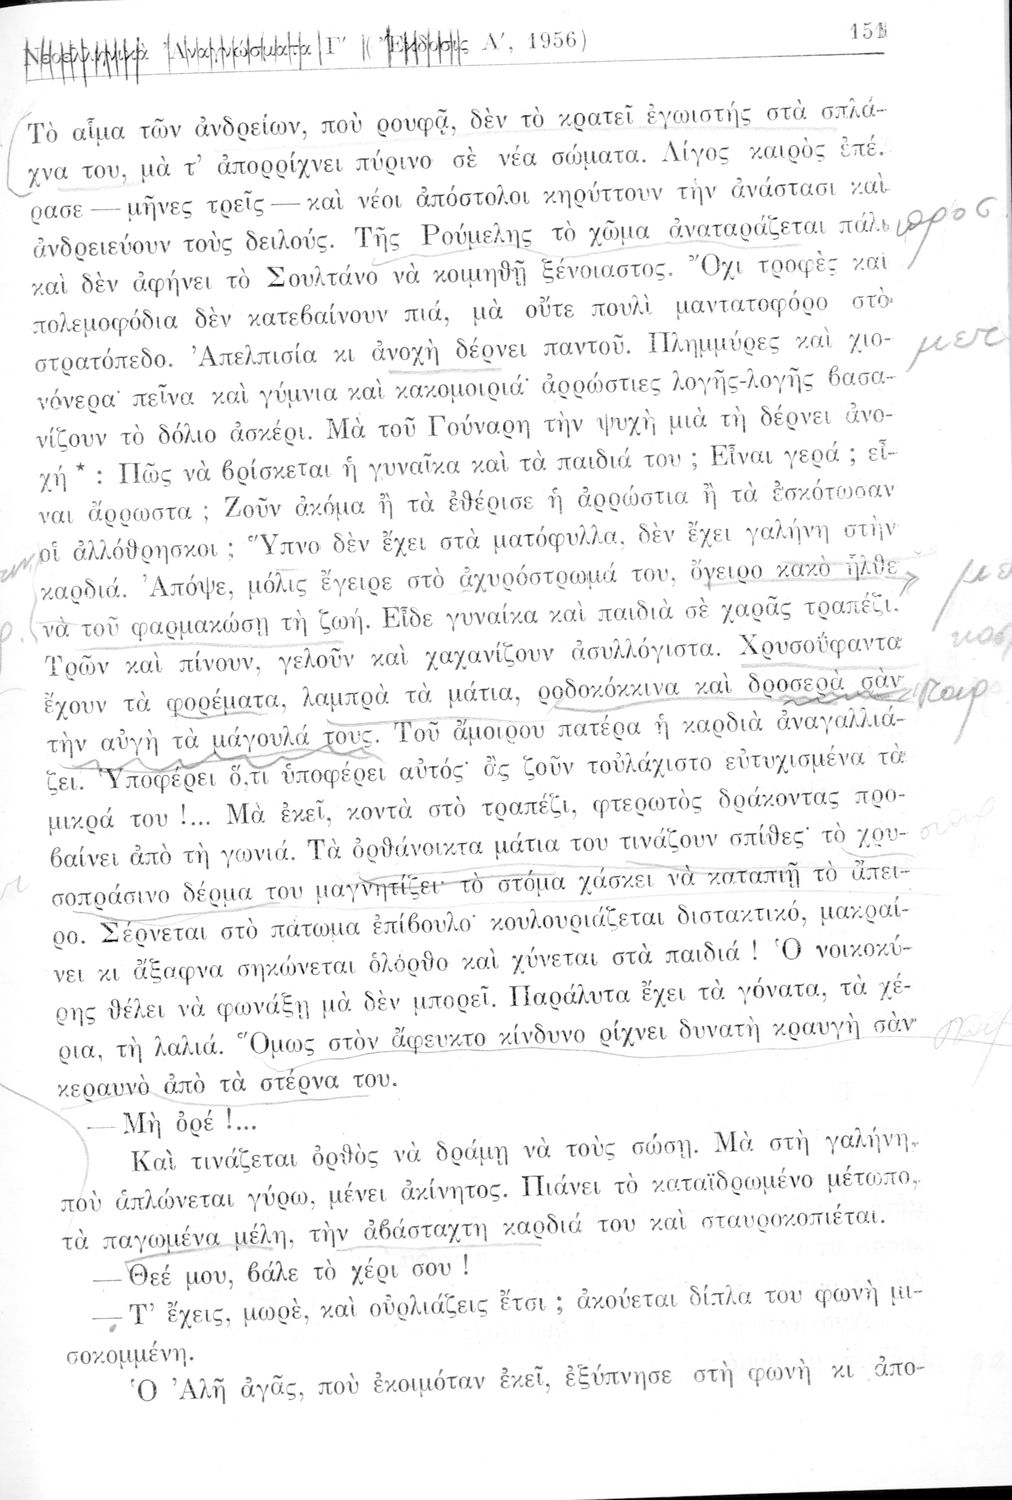 Νεοελληνικὰ Ἀναγνώσματα Γ′ (Ἔκδοσις Α′, 1956) 151
Τὸ αἷμα τῶν ἀνδρείων, ποὺ ρουφᾷ, δὲν τὸ κρατεῖ ἐγωιστής στὰ σπλά-
χνα του, μὰ τ’ ἀπορρίχνει πύρινο σὲ νέα σώματα. Λίγος καιρὸς ἐπέ-
ρασε — μῆνες τρεῖς — καὶ νέοι ἀπόστολοι κηρύττουν τὴν ἀνάστασι καὶ
ἀνδρειεύουν τοὺς δειλούς. Τῆς Ρούμελης τὸ χῶμα ἀναταράζεται πάλι
καὶ δὲν ἀφήνει τὸ Σουλτάνο νὰ κοιμηθῇ ξένοιαστος. Ὄχι τροφὲς καὶ
πολεμοφόδια δὲν κατεβαίνουν πιά, μὰ οὔτε πουλὶ μαντατοφόρο στὸ
στρατόπεδο. Ἀπελπισία κι ἀνοχὴ δέρνει παντοῦ. Πλημμύρες καὶ χιο-
νόνερα· πεῖνα καὶ γύμνια καὶ κακομοιριά· ἀρρώστιες λογῆς-λογῆς βασα-
νίζουν τὸ δόλιο ἀσκέρι. Μὰ τοῦ Γούναρη τὴν ψυχὴ μιὰ τὴ δέρνει ἀνο-
χή * : Πῶς νὰ βρίσκεται ἡ γυναῖκα καὶ τὰ παιδιά του ; Εἶναι γερά ; εἶ-
ναι ἄρρωστα ; Ζοῦν ἀκόμα ἢ τὰ ἐθέρισε ἡ ἀρρώστια ἢ τὰ ἐσκότωσαν
οἱ ἀλλόθρησκοι ; Ὕπνο δὲν ἔχει στὰ ματόφυλλα, δὲν ἔχει γαλήνη στὴν
καρδιά. Ἀπόψε, μόλις ἔγειρε στὸ ἀχυρόστρωμά του, ὄνειρο κακὸ ἦλθε
νὰ τοῦ φαρμακώσῃ τὴ ζωή. Εἶδε γυναίκα καὶ παιδιὰ σὲ χαρᾶς τραπέζι.
Τρῶν καὶ πίνουν, γελοῦν καὶ χαχανίζουν ἀσυλλόγιστα. Χρυσοΰφαντα
ἔχουν τὰ φορέματα, λαμπρὰ τὰ μάτια, ροδοκόκκινα καὶ δροσερὰ σὰν
τὴν αὐγὴ τὰ μάγουλά τους. Τοῦ ἄμοιρου πατέρα ἡ καρδιὰ ἀναγαλλιά-
ζει. Ὑποφέρει ὅ,τι ὑποφέρει αὐτός· ἂς ζοῦν τοὐλάχιστο εὐτυχισμένα τὰ
μικρά του !... Μὰ ἐκεῖ, κοντὰ στὸ τραπέζι, φτερωτὸς δράκοντας προ-
βαίνει ἀπὸ τὴ γωνιά. Τὰ ὀρθάνοικτα μάτια του τινάζουν σπίθες· τὸ χρυ-
σοπράσινο δέρμα του μαγνητίζει· τὸ στόμα χάσκει νὰ καταπιῇ τὸ ἄπει-
ρο. Σέρνεται στὸ πάτωμα ἐπίβουλο· κουλουριάζεται διστακτικό, μακραί-
νει κι ἄξαφνα σηκώνεται ὁλόρθο καὶ χύνεται στὰ παιδιά ! Ὁ νοικοκύ-
ρης θέλει νὰ φωνάξῃ μὰ δὲν μπορεῖ. Παράλυτα ἔχει τὰ γόνατα, τὰ χέ-
ρια, τὴ λαλιά. Ὅμως στὸν ἄφευκτο κίνδυνο ρίχνει δυνατὴ κραυγὴ σὰν
κεραυνὸ ἀπὸ τὰ στέρνα του.
— Μὴ ὀρέ !...
Καὶ τινάζεται ὀρθὸς νὰ δράμῃ νὰ τοὺς σώσῃ. Μὰ στὴ γαλήνη,
ποὺ ἁπλώνεται γύρω, μένει ἀκίνητος. Πιάνει τὸ καταϊδρωμένο μέτωπο,
τὰ παγωμένα μέλη, τὴν ἀβάσταχτη καρδιά του καὶ σταυροκοπιέται.
— Θεέ μου, βάλε τὸ χέρι σου !
— Τ’ ἔχεις, μωρὲ, καὶ οὐρλιάζεις ἔτσι ; ἀκούεται δίπλα του φωνὴ μι-
σοκομμένη.
Ὁ Ἀλῆ ἀγᾶς, ποὺ ἐκοιμόταν ἐκεῖ, ἐξύπνησε στὴ φωνὴ κι ἀπο-